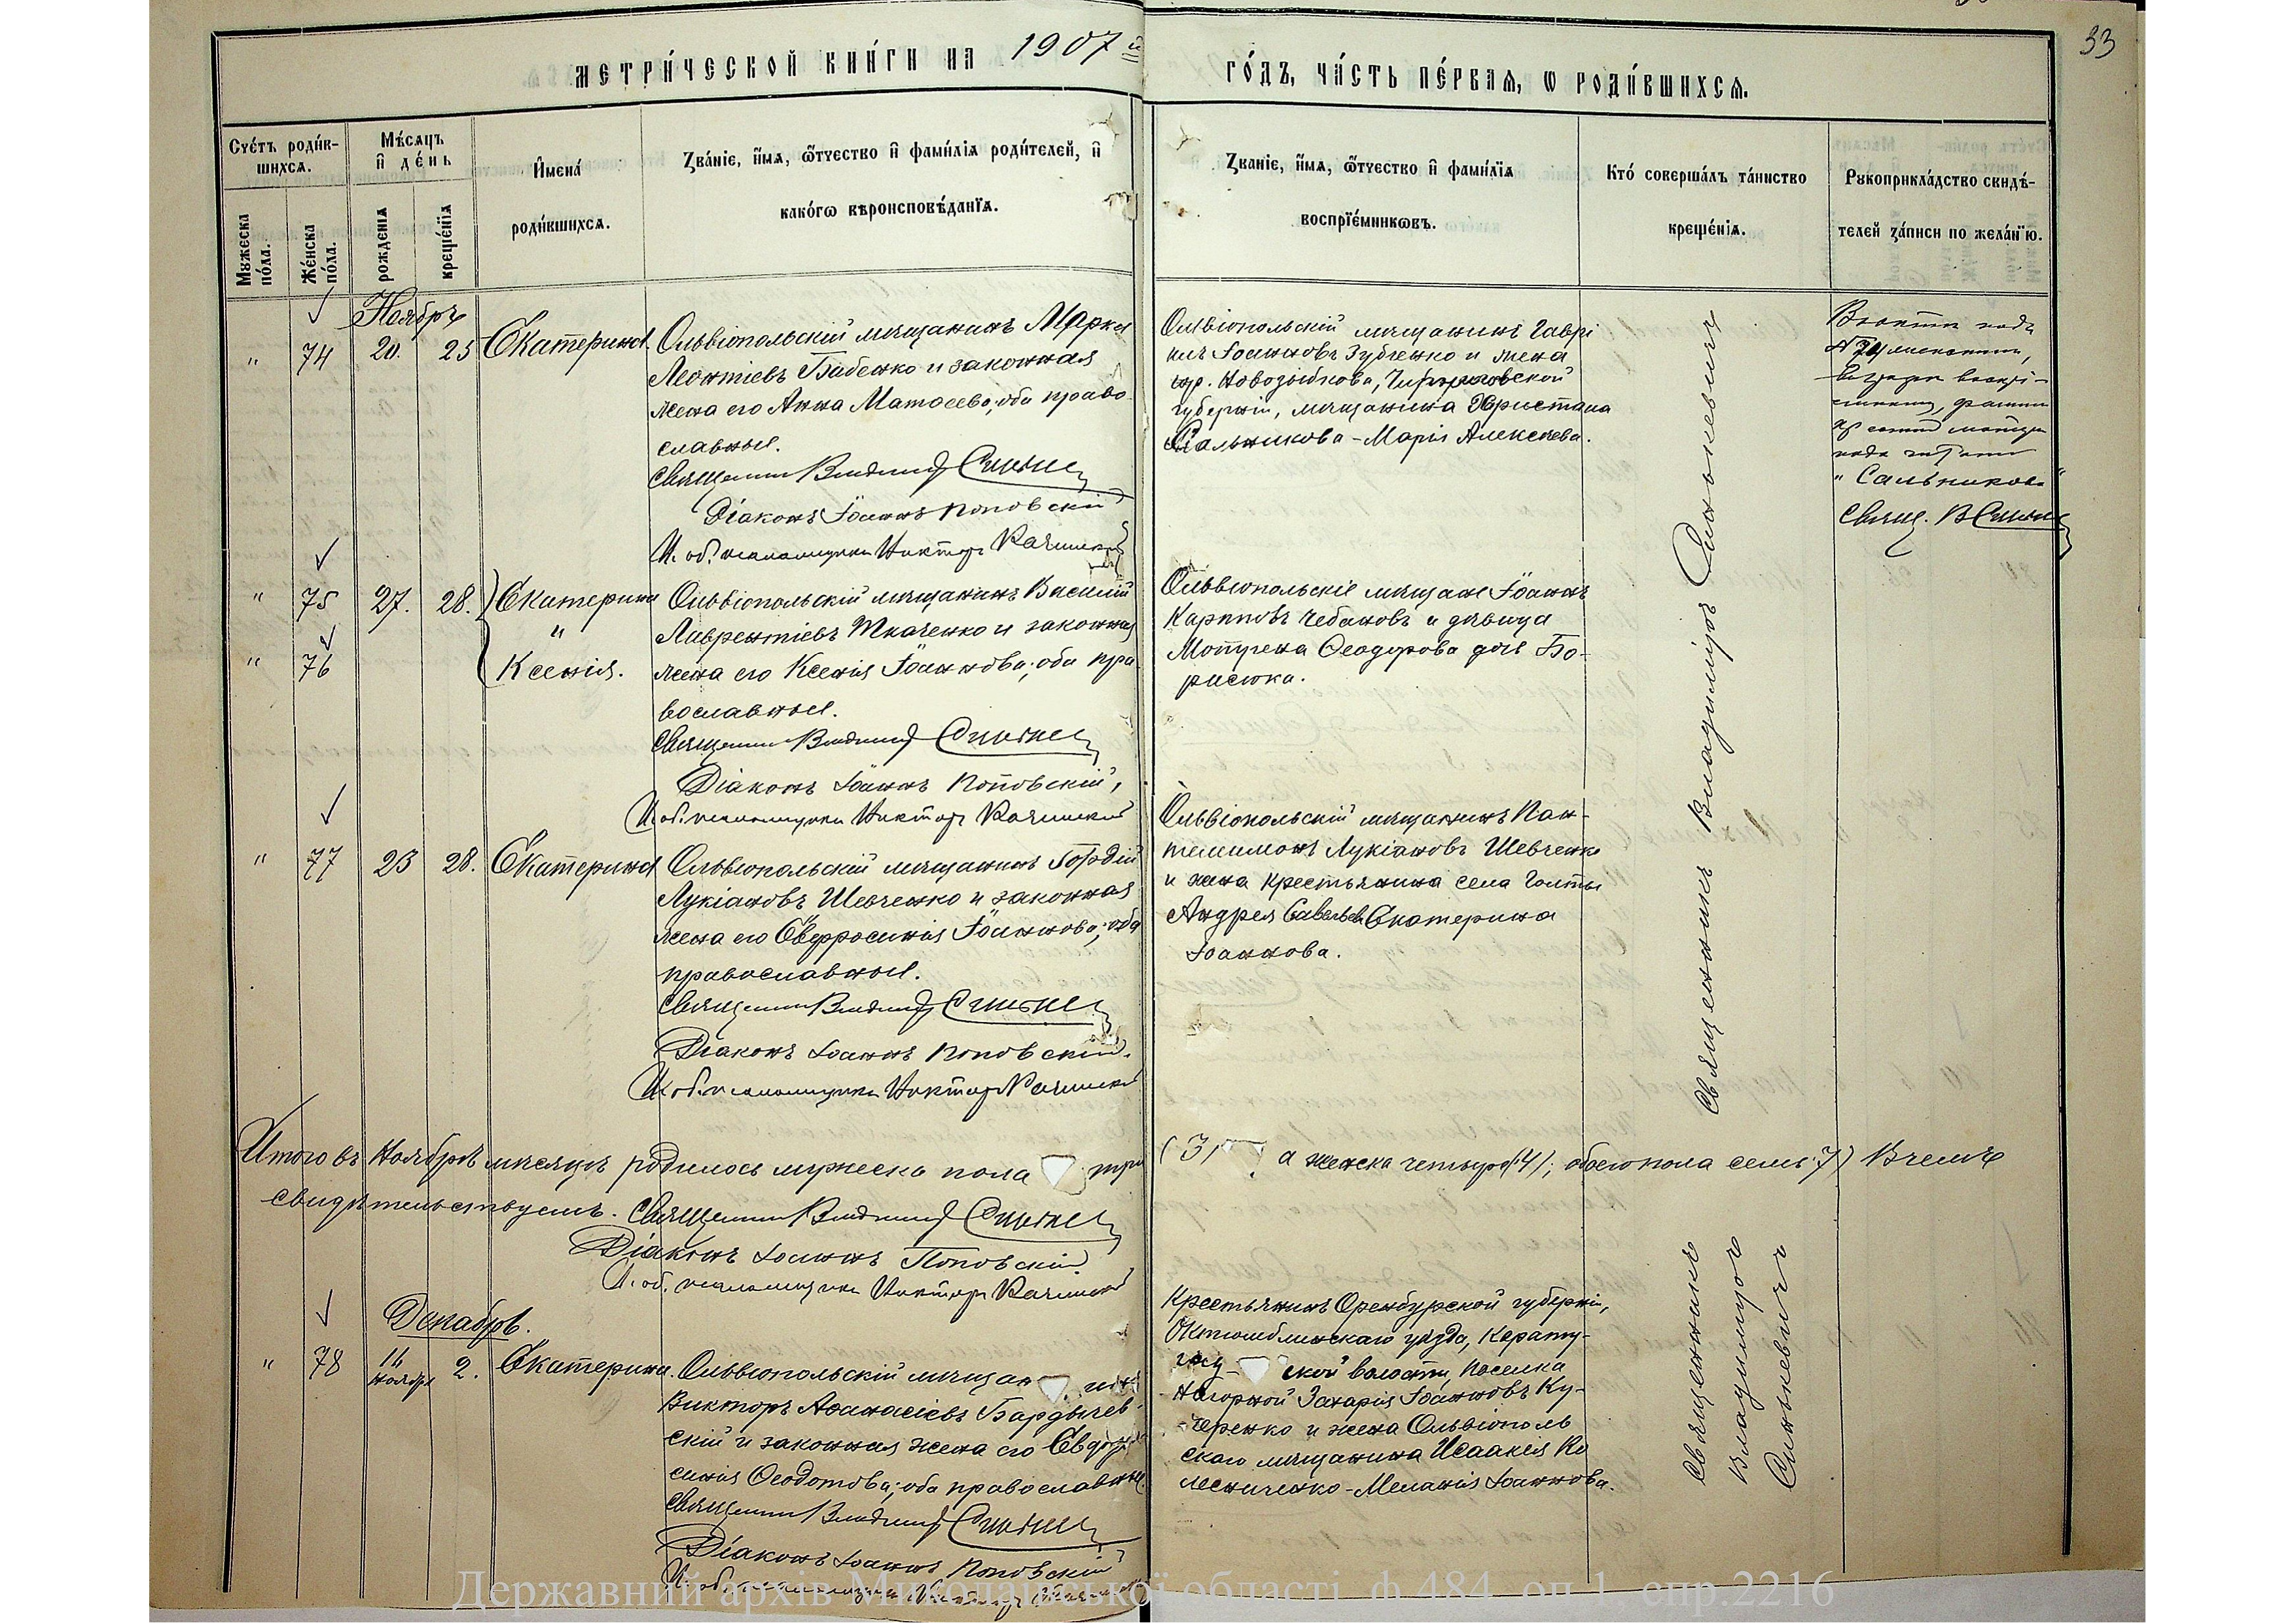 33
МЕТРИ́ЧЕСКОЙ КНИ́ГИ НА 1907й
ГО́ДЪ, ЧА́СТЬ ПЕ́РВАѦ, Ѡ РОДИ́ВШИХСѦ.
Сче́тъ роди́в-
шихсѧ.
Мꙋжеска по́ла.
Же́нска по́ла.
Мѣ́сѧцъ
и҆ де́нь
рожде́нїѧ
креще́нїѧ
И҆мена̀
роди́вшихсѧ.
Зва́нїе, и҆́мѧ, ѻ҆́тчество и҆ фами́лїѧ роди́телей, и҆
како́гѡ вѣроисповѣ́данїѧ.
Зва́нїе, и҆́мѧ, ѻ҆́тчество и҆ фами́лїѧ
воспрїе́мникѡвъ.
Кто̀ соверша́лъ та́инство
креще́нїѧ.
Рꙋкоприкла́дство свидѣ́-
телей за́писи по жела́нїю.
Ноябрь
" 74 20. 25 Екатерина
Ольвіопольскій мѣщанинъ Марка
Леонтіевъ Бабенко и законная
жена его Анна Матѳеева; оба право-
славные.
Священникъ Владимір Синькев
Діаконъ Іоаннъ Поповскій
И. об. псаломщика Виктор Качинскій
Ольвіопольскій мѣщанинъ Гаврі
илъ Іоанновъ Зубченко и жена
гор. Новозыбкова, Черниговской
губерніи, мѣщанина Христана
Сальникова - Марія Алексѣева.
Въ актѣ подъ
№ 74
"Сальникова"
Свящ. В Синьк
" 75 27. 28. Екатерина
"
" 76 Ксенія.
Ольвіопольскій мѣщанинъ Василій
Лаврентіевъ Ткаченко и законная
жена его Ксенія Іоаннова; оба пра
вославные.
Священникъ Владимір Синькев
Діаконъ Іоаннъ Поповскій,
И. об. псаломщика Виктор Качинскій
Ольвіопольскіе мѣщане Іоаннъ
Карповъ Чебановъ и дѣвица
Мотрена Ѳеодорова дочь Бо-
рисюка.
" 77 23 28. Екатерина
Ольвіопольскій мѣщанинъ Гордій
Лукіановъ Шевченко и законная
жена его Евфросинія Іоаннова; оба
православные.
Священникъ Владимір Синькев
Діаконъ Іоаннъ Поповскій.
И. об. псаломщика Виктор Качинскій
Ольвіопольскій мѣщанинъ Пан-
телимонъ Лукіановъ Шевченко
и жена крестьянина села Голты
Андрея Савельева Екатерина
Іоаннова.
Священникъ Владиміръ Синькевичъ
Итого въ Ноябрѣ мѣсяцѣ родилось мужеска пола три (3) а женска четыре (4); обоего пола семь (7) В чемъ
свидѣтельствуемъ. Священникъ Владимір Синькев
Діаконъ Іоаннъ Поповскій.
И. об. псаломщика Виктор Качинскій
Декабрь.
" 78 14 ноября 2. Екатерина.
Ольвіопольскій мѣщанинъ
Викторъ Аѳанасіевъ Бардычев-
скій и законная жена его Евфро
синія Ѳеодотова; оба православные.
Священникъ Владимір Синькев
Діаконъ Іоаннъ Поповскій
И. об. псаломщика Виктор Качинскій
Крестьянинъ Оренбургской губерніи,
Актюбинскаго уѣзда, Карату-
ской волости, поселка
Нагорной Захарія Іоанновъ Ку-
черенко и жена Ольвіополь
скаго мѣщанина Исаакія Ко
лесниченко - Меланія Іоаннова.
Священникъ
Владиміръ
Синькевичъ
Державний архів Миколаївської області, ф.484, оп.1, спр.2216